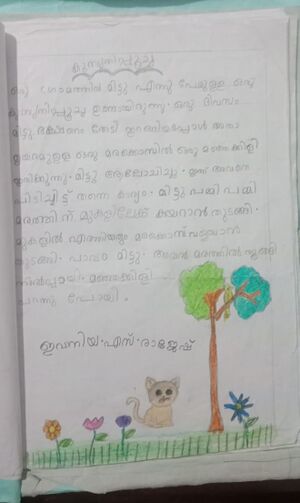 കുസൃതിപ്പൂച്ച
ഒരു ഗ്രാമത്തിൽ മിട്ടു എന്നു പേരുള്ള ഒരു
കുസൃതിപ്പൂച്ച ഉണ്ടായിരുന്നു. ഒരു ദിവസം
മിട്ടു ഭക്ഷണം തേടി ഇറങ്ങിയപ്പോൾ അതാ
ഉയരമുള്ള ഒരു മരക്കൊമ്പിൽ ഒരു മഞ്ഞക്കിളി
ഇരിക്കുന്നു. മിട്ടു ആലോചിച്ചു. ഇന്ന് അവനെ
പിടിച്ചിട്ട് തന്നെ കാര്യം. മിട്ടു പമ്മി പമ്മി
മരത്തിന് മുകളിലേക്ക് കയറാൻ തുടങ്ങി.
മുകളിൽ എത്തിയതും മരക്കൊമ്പ്
തുടങ്ങി. പാവം മിട്ടു. അവൻ മരത്തിൽ തൂങ്ങി
മഞ്ഞക്കിളി
പറന്നു പോയി.
ഇവനിയ.എസ്.രാജേഷ്